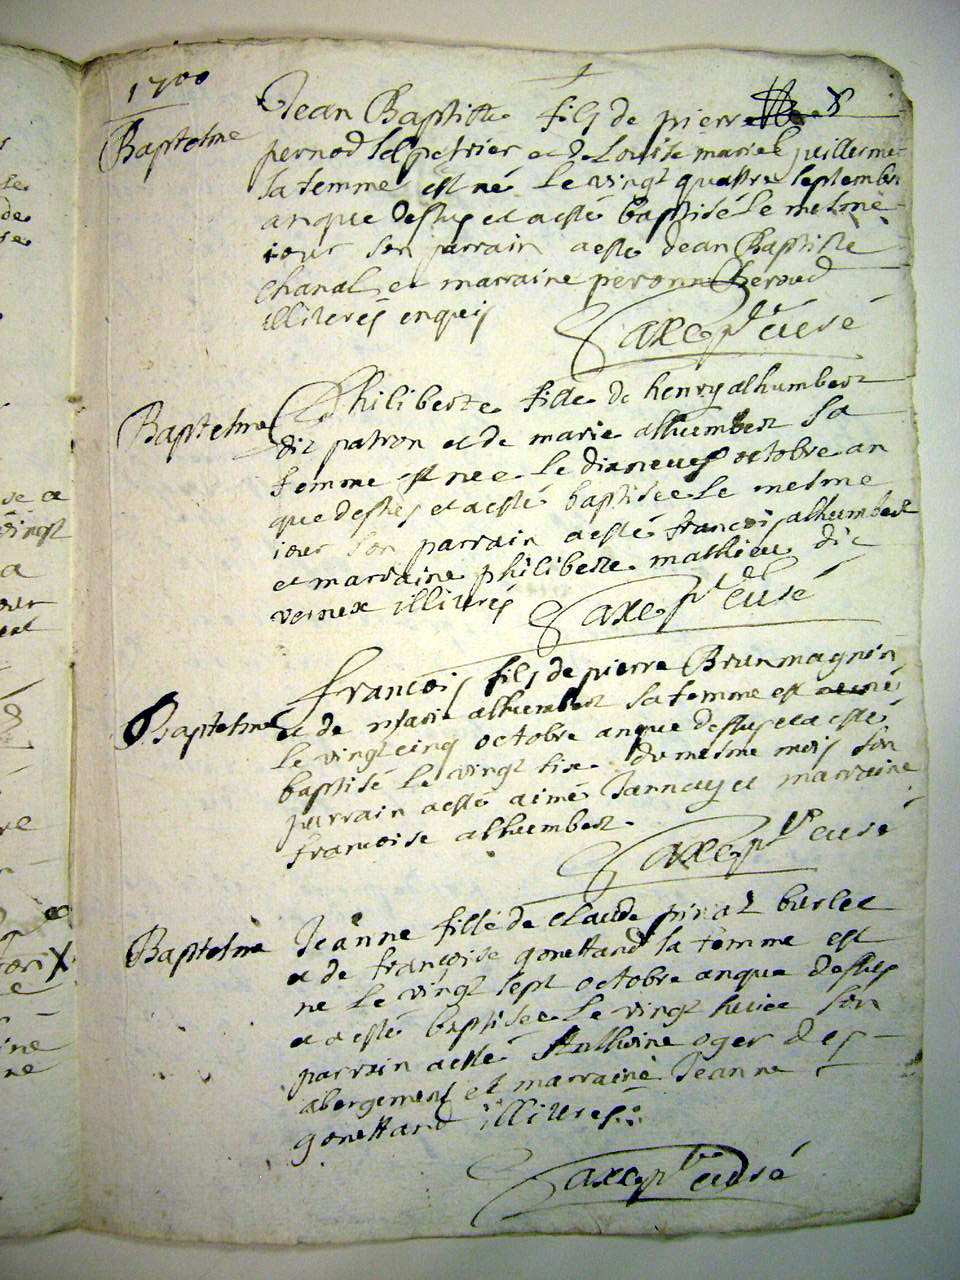 1700
Baptesme
Jean Baptiste fils de pierre
pernod salpetrier et de Louise mariee juillerme
sa femme est né le vingt quattre septembre
an que dessus et a esté baptisé le mesme
iour son parrain a esté Jean Baptiste
Chanal et marraine peronne Beroud
illiterés enquis
Saxe p^t curé
Baptesme
Philiberte fille de henry alhumbert
dit patron et de marie alhumbert sa
femme est nee le dixneuf octobre an
que dessus et a esté baptisee le mesme
iour son parrain a esté françois alhumbert
et marraine philiberte mathieu dit
vernux illiterés
Saxe p^t curé
Baptesme
francois fils de pierre Brunmagnin
et de marie alhumbert sa femme est né
le vingt cinq octobre an que dessus et a esté
baptisé le vingt six du mesme mois son
parrain a esté aimé Jannet et marraine
francoise alhumbert
Saxe p^t curé
Baptesme
Jeanne fille de claude pirat burlet
et de françoise gonettand sa femme est
ne le vingt sept octobre an que dessus
et a esté baptisee le vingt huict son
parrain a esté Anthoine oger des
abergement et marraine Jeanne
gonettand illiteres
Saxe p^t curé